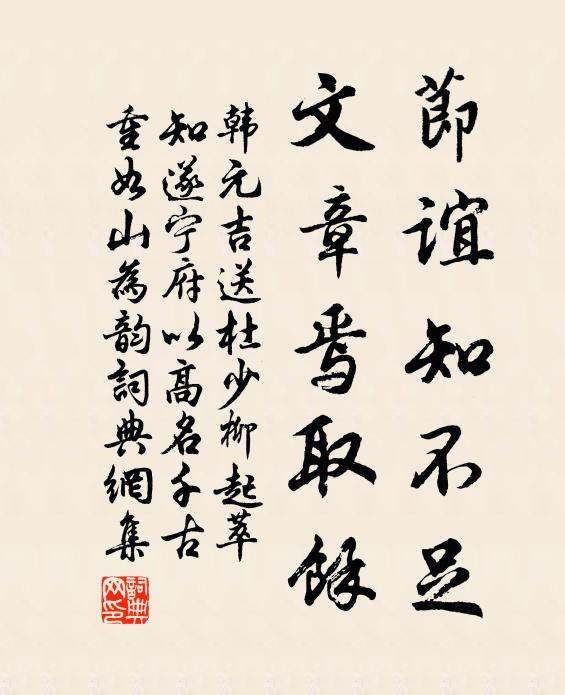 節誼知不足
文章焉取餘
韓元吉送杜少卿起莘
知遂宁府以高名千古
重如山為韵詞典網集
詞典网印